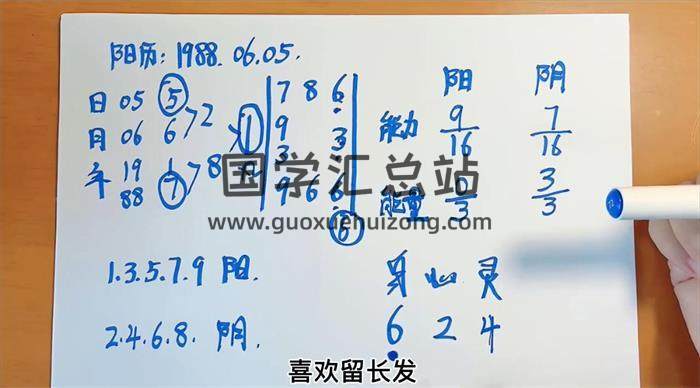 阳历: 1988.06.05.
阳 阴
日 05 5 7 8 6
月 06 6 >2 1 9 3 能力 9/16 7/16
年 19 1 >8 3
88 7 9 6 6 能量 0/3 3/3
6
国学汇总站
www.guoxuehuizong.com
1.3.5.7.9 阳.
身 心 灵
2.4.6.8. 阴.
6 2 4
喜欢留长发